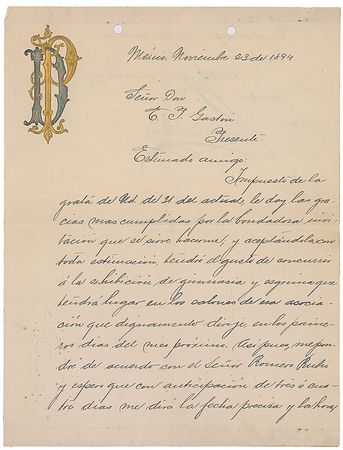 México, Noviembre 23 de 1894
Señor Don
E. T. Gastón
Presente.
Estimado amigo:
Impuesto de la
grata de Ud. de 21 del actual, le doy las gra-
cias mas cumplidas por la bondadosa invi-
tacion que se sirve hacerme, y aceptándola con
toda estimacion, tendré el gusto de concurrir
á la exhibicion de gimnasia y esgrima que
tendrá lugar en los salones de esa asocia-
cion que dignamente dirije, en los prime-
ros dias del mes próximo. Asi pues, me pon-
dré de acuerdo con el Señor Romero Rubio
y espero que con anticipacion de tres ó cua-
tro dias me dirá la fecha precisa y la hora